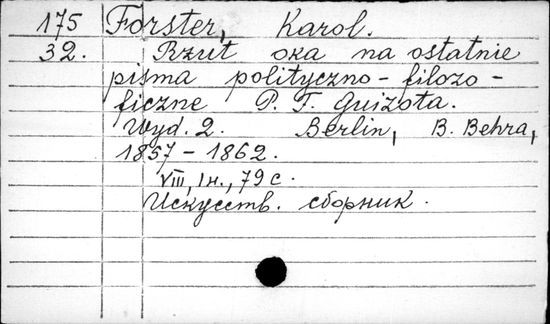 175 Forster, Karol.
32. Rzut oka na ostatnie
pisma polityczno-filozo-
ficzne P. F. Guizota.
Wyd. 2. Berlin, B. Behra,
1857-1862.
VIII, Iн., 79 с.
Искусств. сборник.